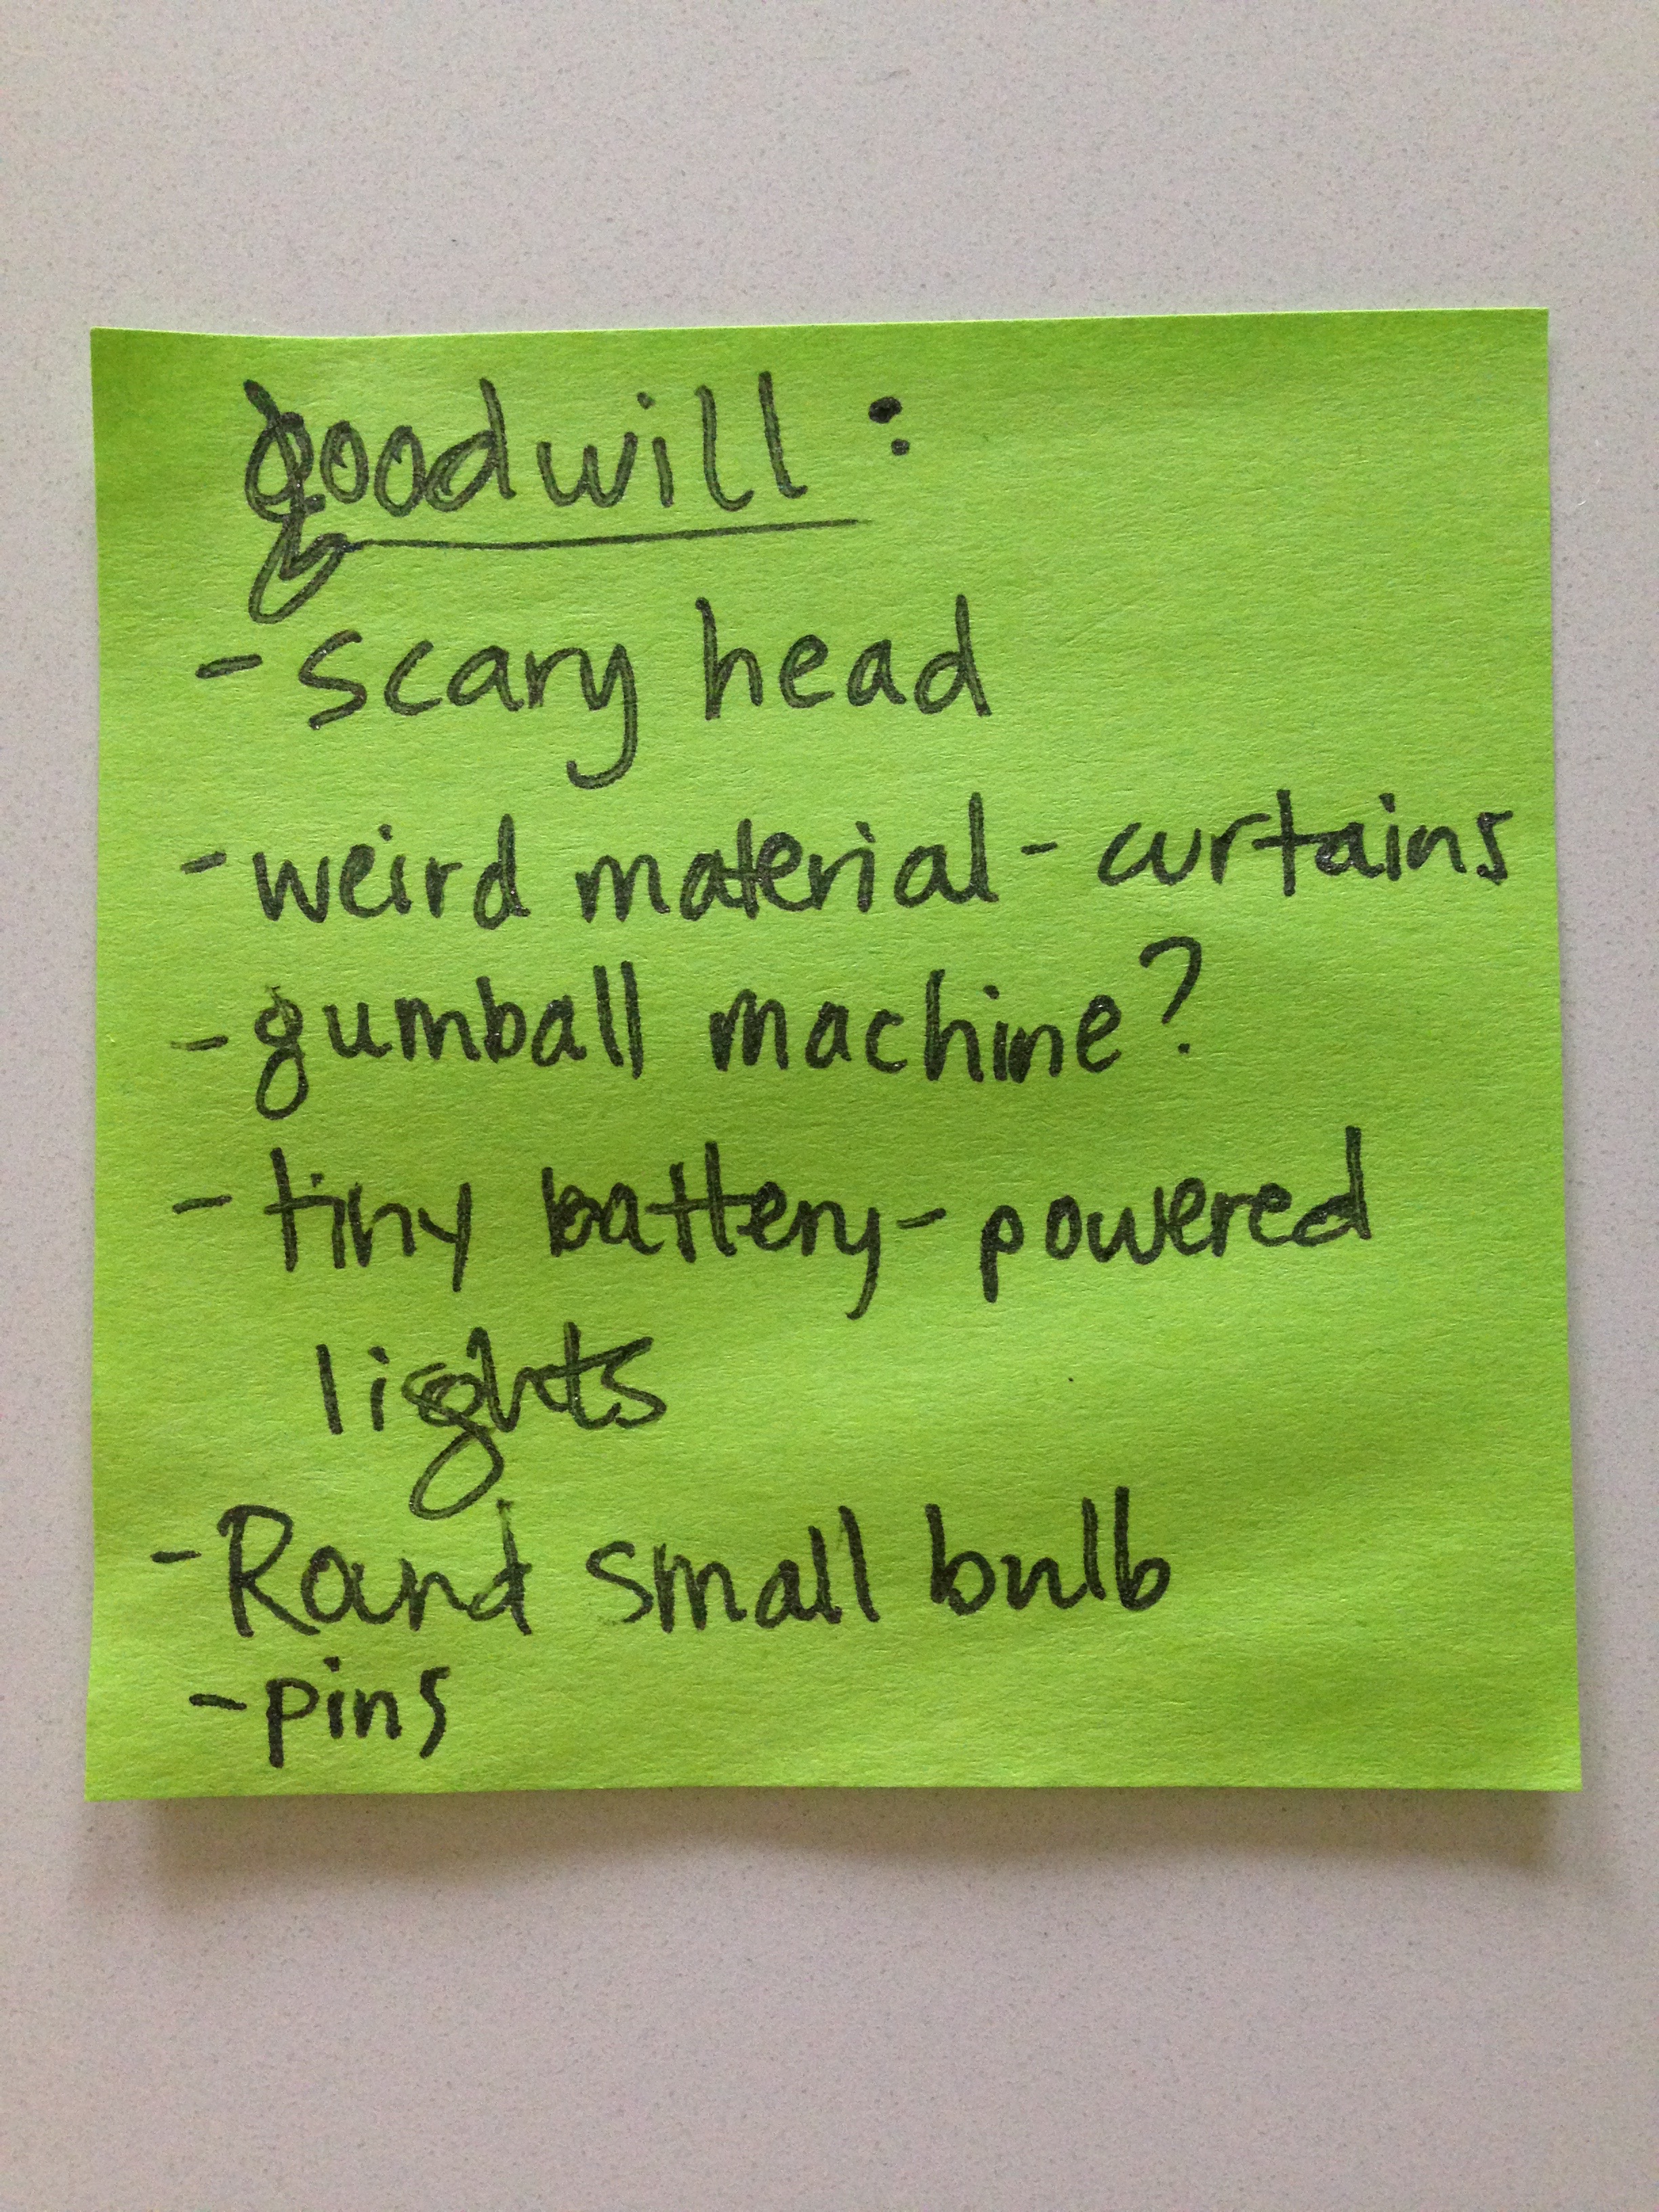 goodwill:
- scary head
- weird material - curtains
- gumball machine?
- tiny battery-powered
lights
- Round small bulb
- pins